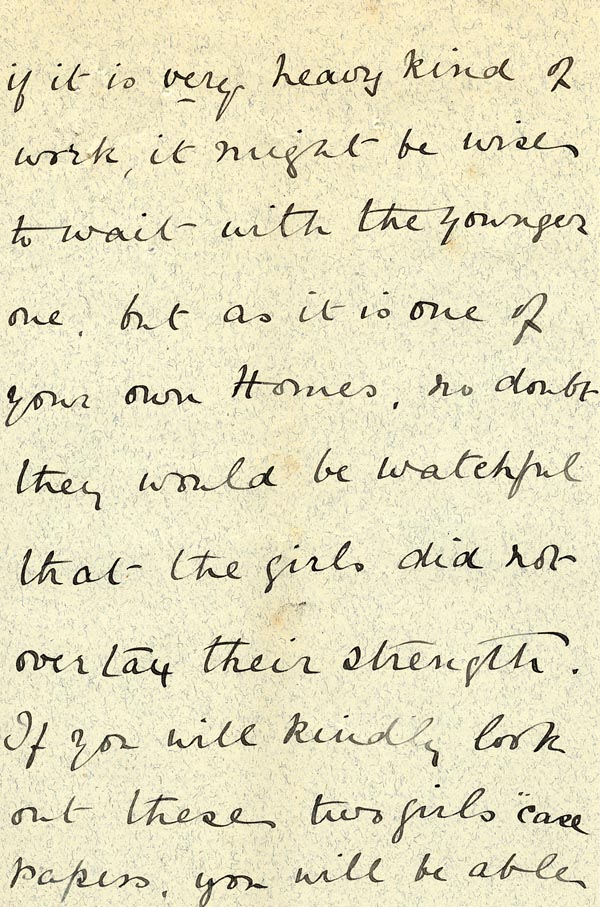 if it is very heavy kind of
work, it might be wise
to wait with the younger
one. but as it is one of
your own Homes, no doubt
they would be watchful
that the girls did not
overtax their strength.
If you will kindly look
out these two girls "case
papers, you will be able